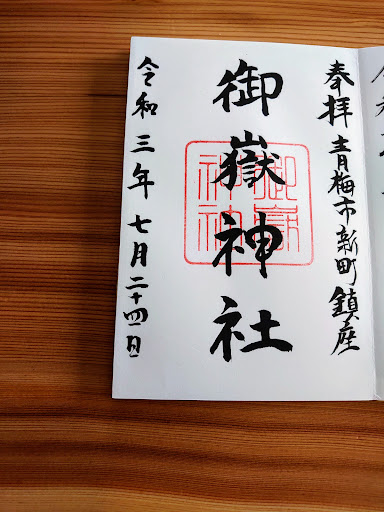 奉拝 青梅市新町鎮座
御嶽神社
令和三年七月二十四日